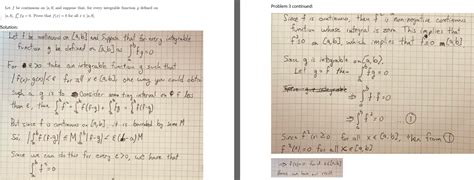 Let f be continuous on [a,b], and suppose that, for every integrable function g defined on
[a,b], ∫ₐᵇ fg = 0. Prove that f(x) = 0 for all x ∈ [a,b].
Solution:
Let f be continuous on [a,b] and suppose that for every integrable
function g defined on [a,b] is ∫ₐᵇ fg = 0
For ε>0 take an integrable function g such that
|f(x)-g(x)|<ε for all x∈[a,b], one way you could obtain
such a g is to consider some interval on f less
than ε, then ∫ₐᵇ f² = ∫ₐᵇ f(f-g) + ∫ₐᵇ fg = ∫ₐᵇ f(f-g)
But since f is continuous on [a,b], it is bounded by some M
So, |∫ₐᵇ f(f-g)| ≤ M ∫ₐᵇ |f-g| ≤ ε(b-a)M
Since we can do this for every ε>0, we have that
∫ₐᵇ f² = 0
Problem 3 continued:
Since f is continuous, then f² is non-negative continuous
function whose integral is zero. This implies that
f² = 0 on [a,b], which implies that f = 0 on [a,b]
Since g is integrable on [a,b].
Let g = f then ∫ₐᵇ fg = 0
⇒ ∫ₐᵇ f·f = 0
⇒ ∫ₐᵇ f² = 0 ①
Since f²(x) ≥ 0 for all x ∈ [a,b], then from ①
f²(x) = 0 for all x ∈ [a,b]
⇒ f(x) = 0 for all x∈[a,b]